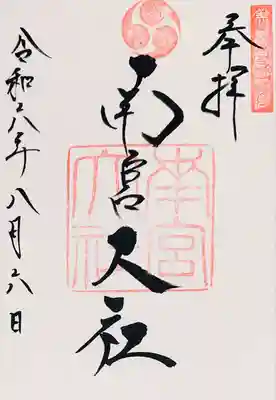 奉拝
南宮大社
南宮大社
令和六年八月六日